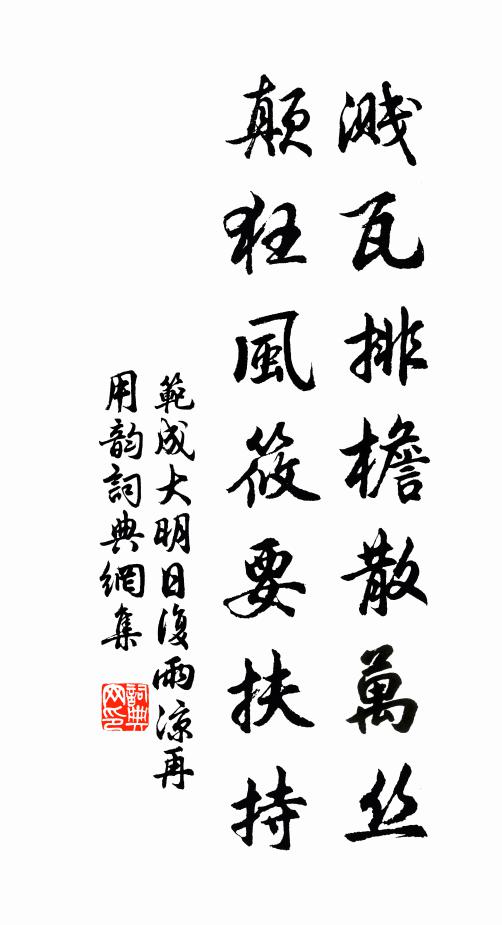 濺瓦排檐散萬丝
颠狂風筱要扶持
範成大明日復雨凉再
用韵詞典網集
詞典
网印